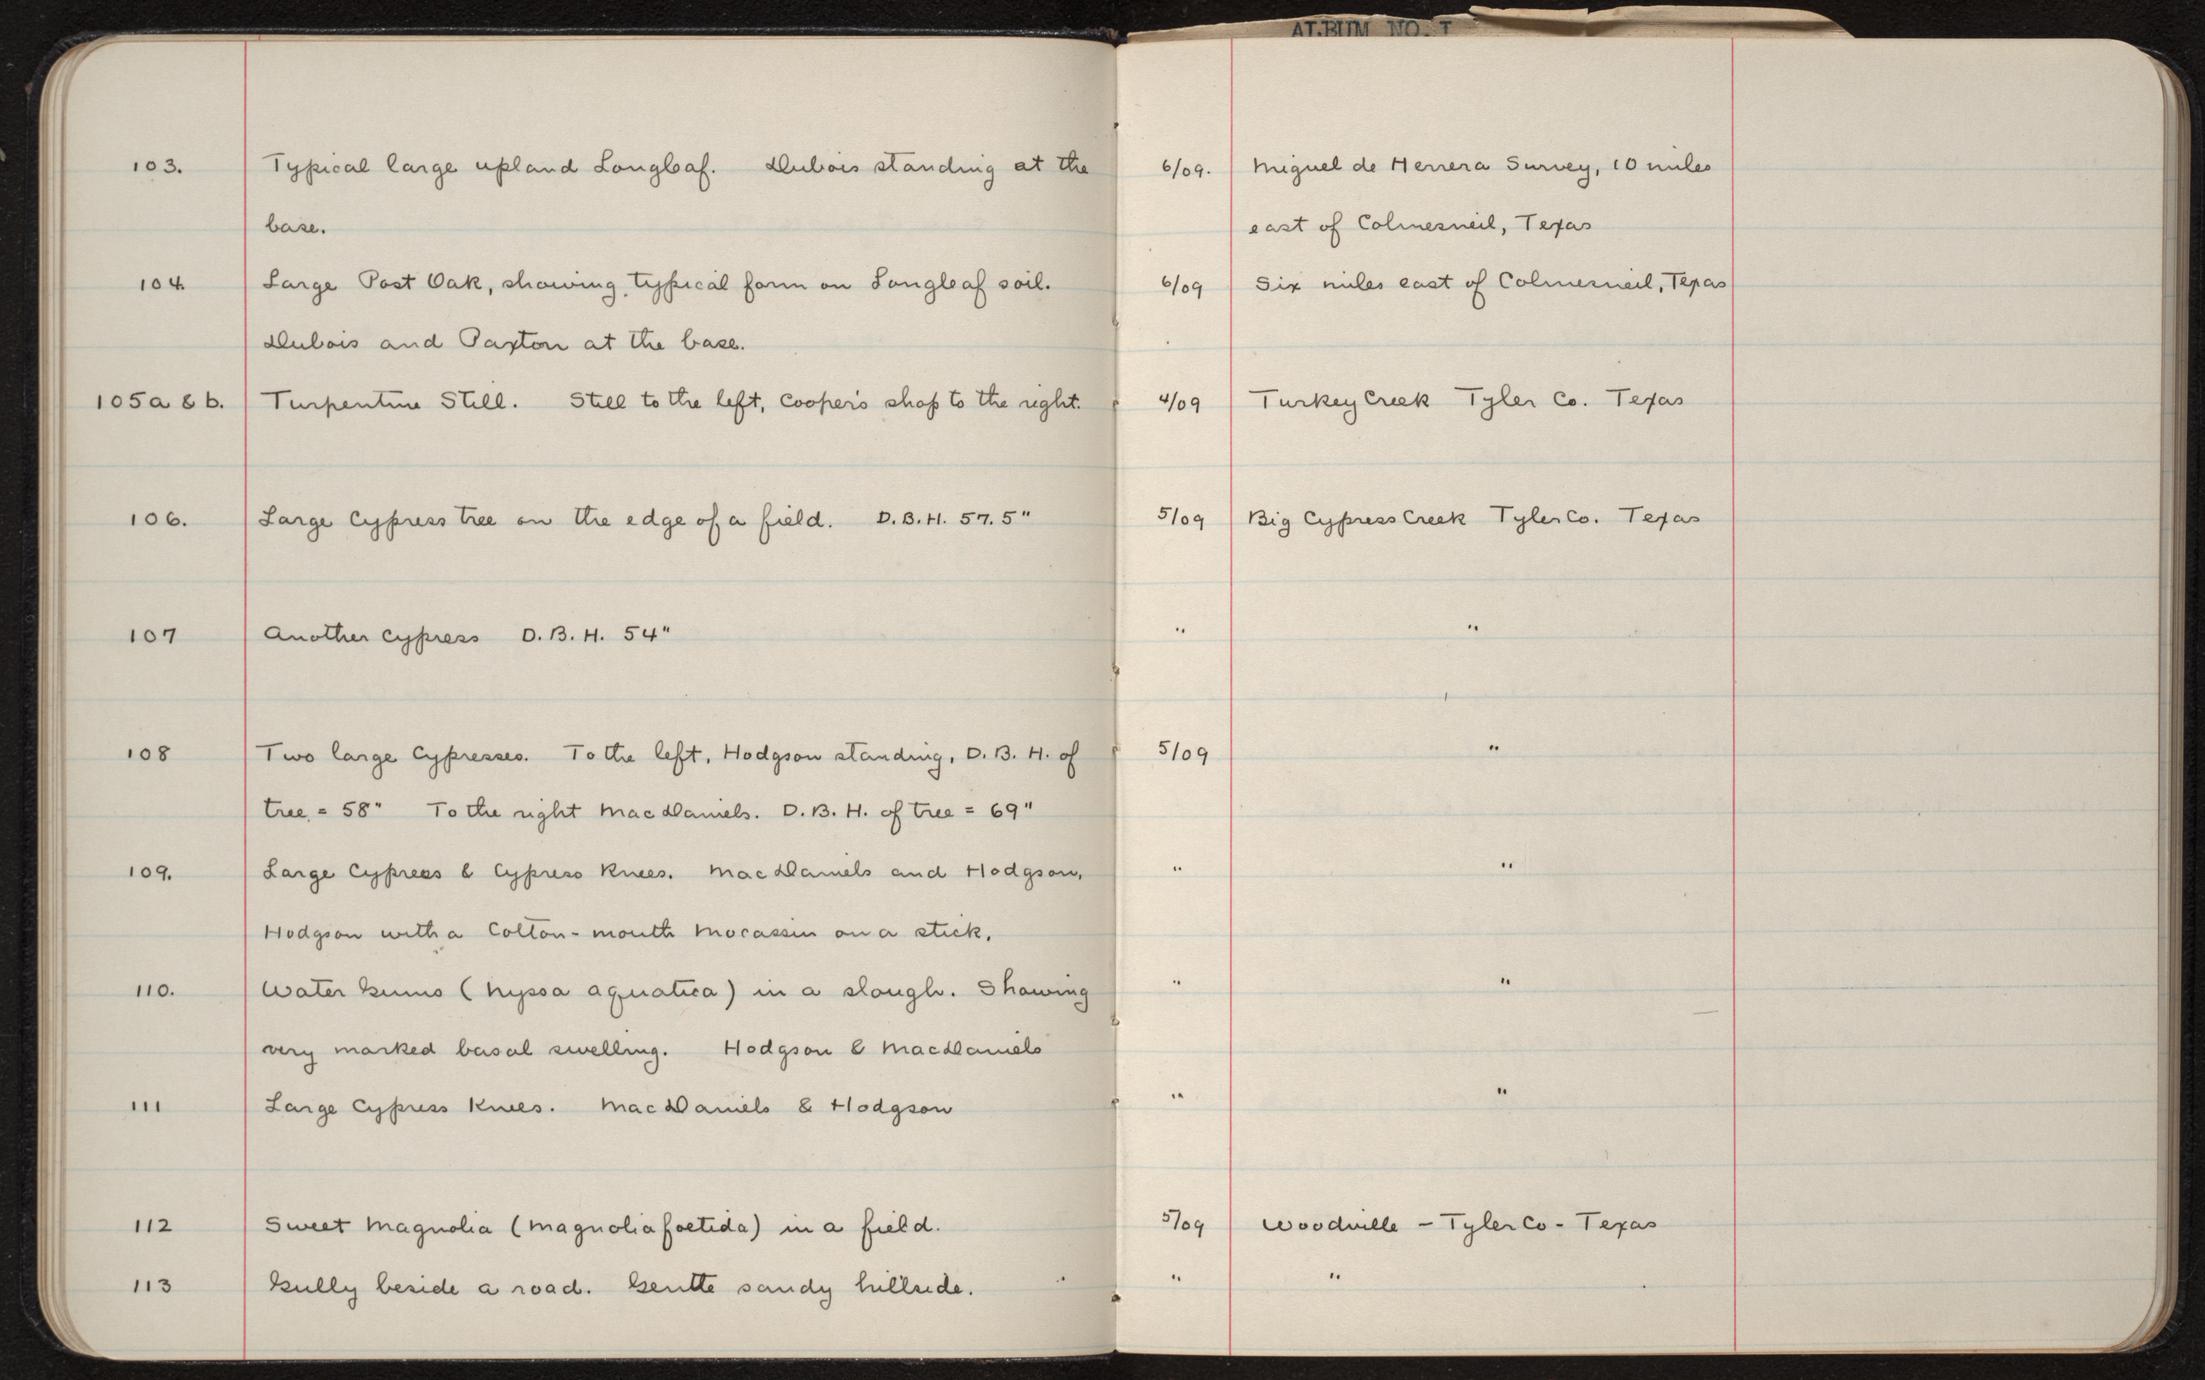 ALBUM NO. I
103. Typical large upland Longleaf. Dubois standing at the 6/09. Miguel de Herrera Survey, 10 miles
base. east of Colmesneil, Texas
104. Large Post Oak, showing typical form on Longleaf soil. 6/09 Six miles east of Colmesneil, Texas
Dubois and Paxton at the base.
105a & b. Turpentine Still. Still to the left, Cooper's shop to the right. 4/09 Turkey Creek Tyler Co. Texas
106. Large Cypress tree on the edge of a field. D.B.H. 57.5" 5/09 Big Cypress Creek Tyler Co. Texas
107 Another Cypress D.B.H. 54" " "
108 Two large Cypresses. To the left, Hodgson standing, D.B.H. of 5/09 "
tree = 58" To the right MacDaniels. D.B.H. of tree = 69"
109. Large Cypress & Cypress Knees. MacDaniels and Hodgson, " "
Hodgson with a Cotton-mouth Mocassin on a stick.
110. Water Gums (Nyssa aquatica) in a slough. Showing " "
very marked basal swelling. Hodgson & MacDaniels
111 Large Cypress Knees. MacDaniels & Hodgson " "
112 Sweet Magnolia (Magnolia foetida) in a field. 5/09 Woodville - Tyler Co - Texas
113 Gully beside a road. Gentle sandy hillside. " "